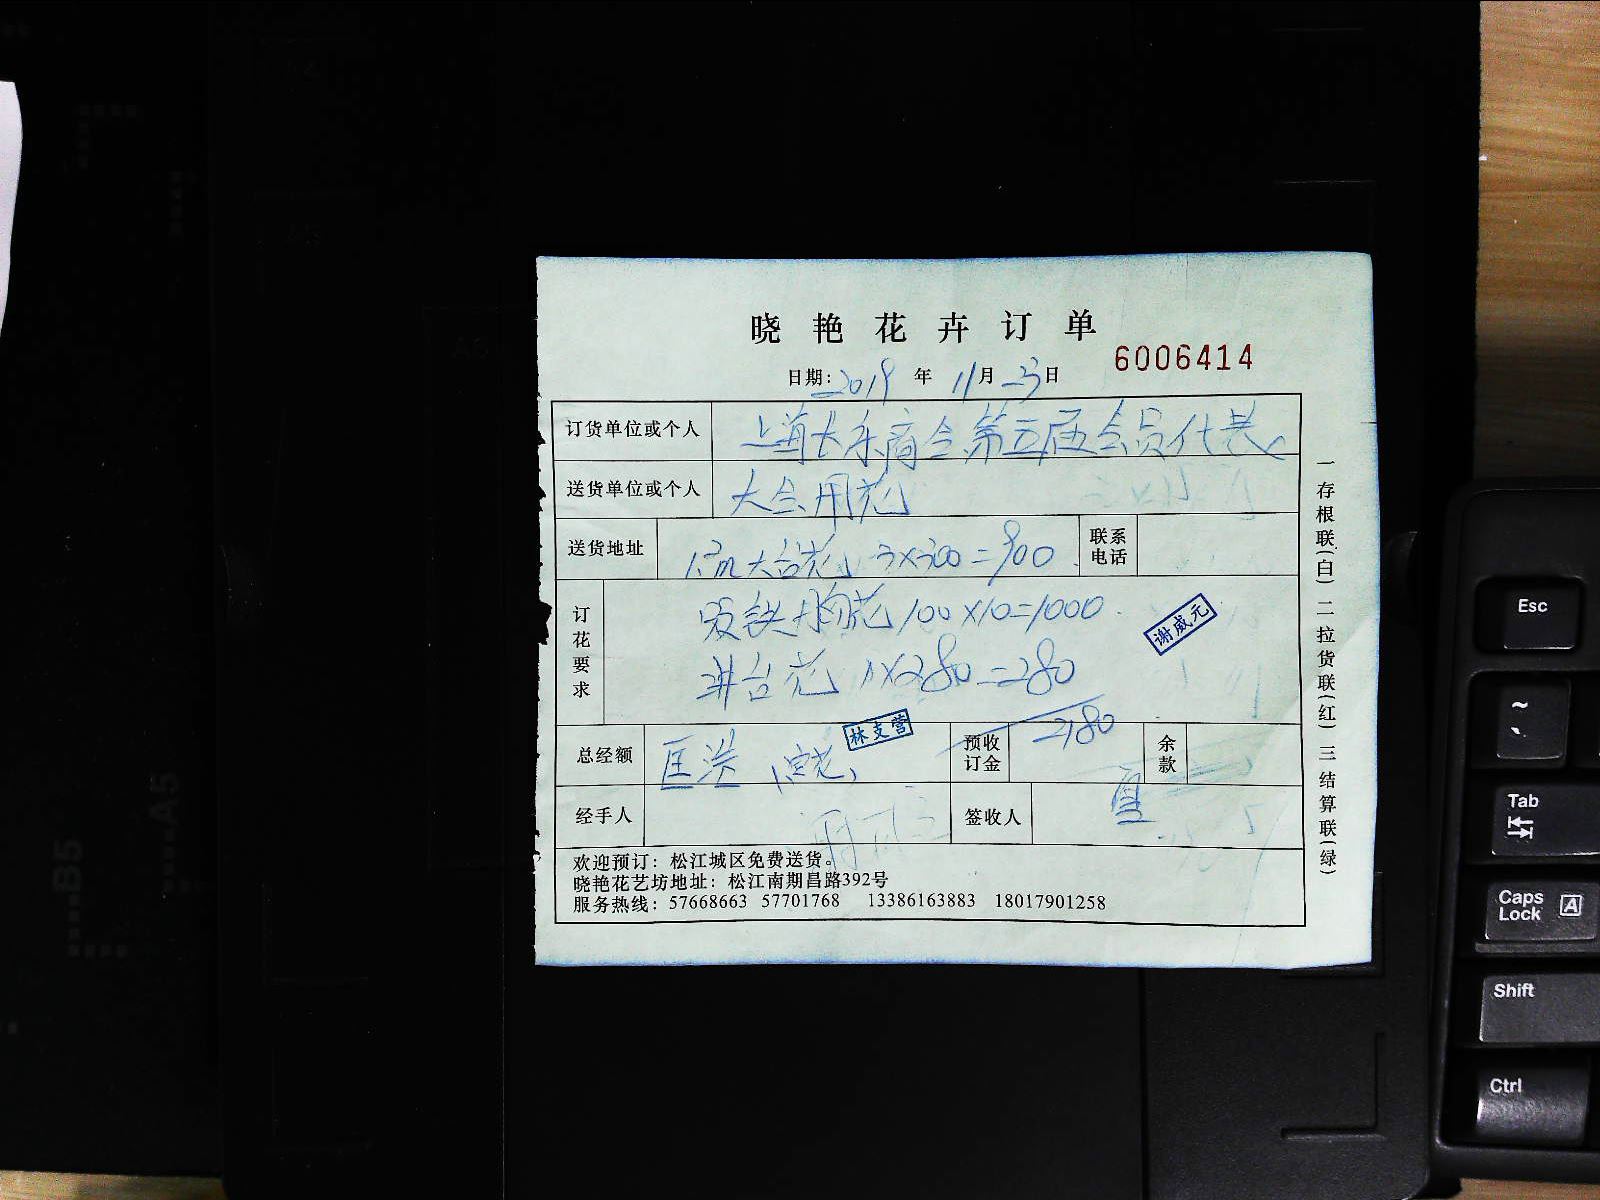 晓艳花卉订单
6006414
日期: 2019 年 11 月 23 日
订货单位或个人 上海长乐商会第五届会员代表
送货单位或个人 大会用花
送货地址 大台花 3×300=900 联系电话
订花要求 吸铁胸花 100×10=1000
讲台花 1×280=280
谢威元
林支营
2180
总经额 预收订金 余款
经手人 签收人 夏
欢迎预订：松江城区免费送货。
晓艳花艺坊地址：松江南期昌路392号
服务热线：57668663 57701768 13386163883 18017901258
一存根联(白) 二拉货联(红) 三结算联(绿)
B5
A5
Esc
~
Tab
Caps Lock A
Shift
Ctrl